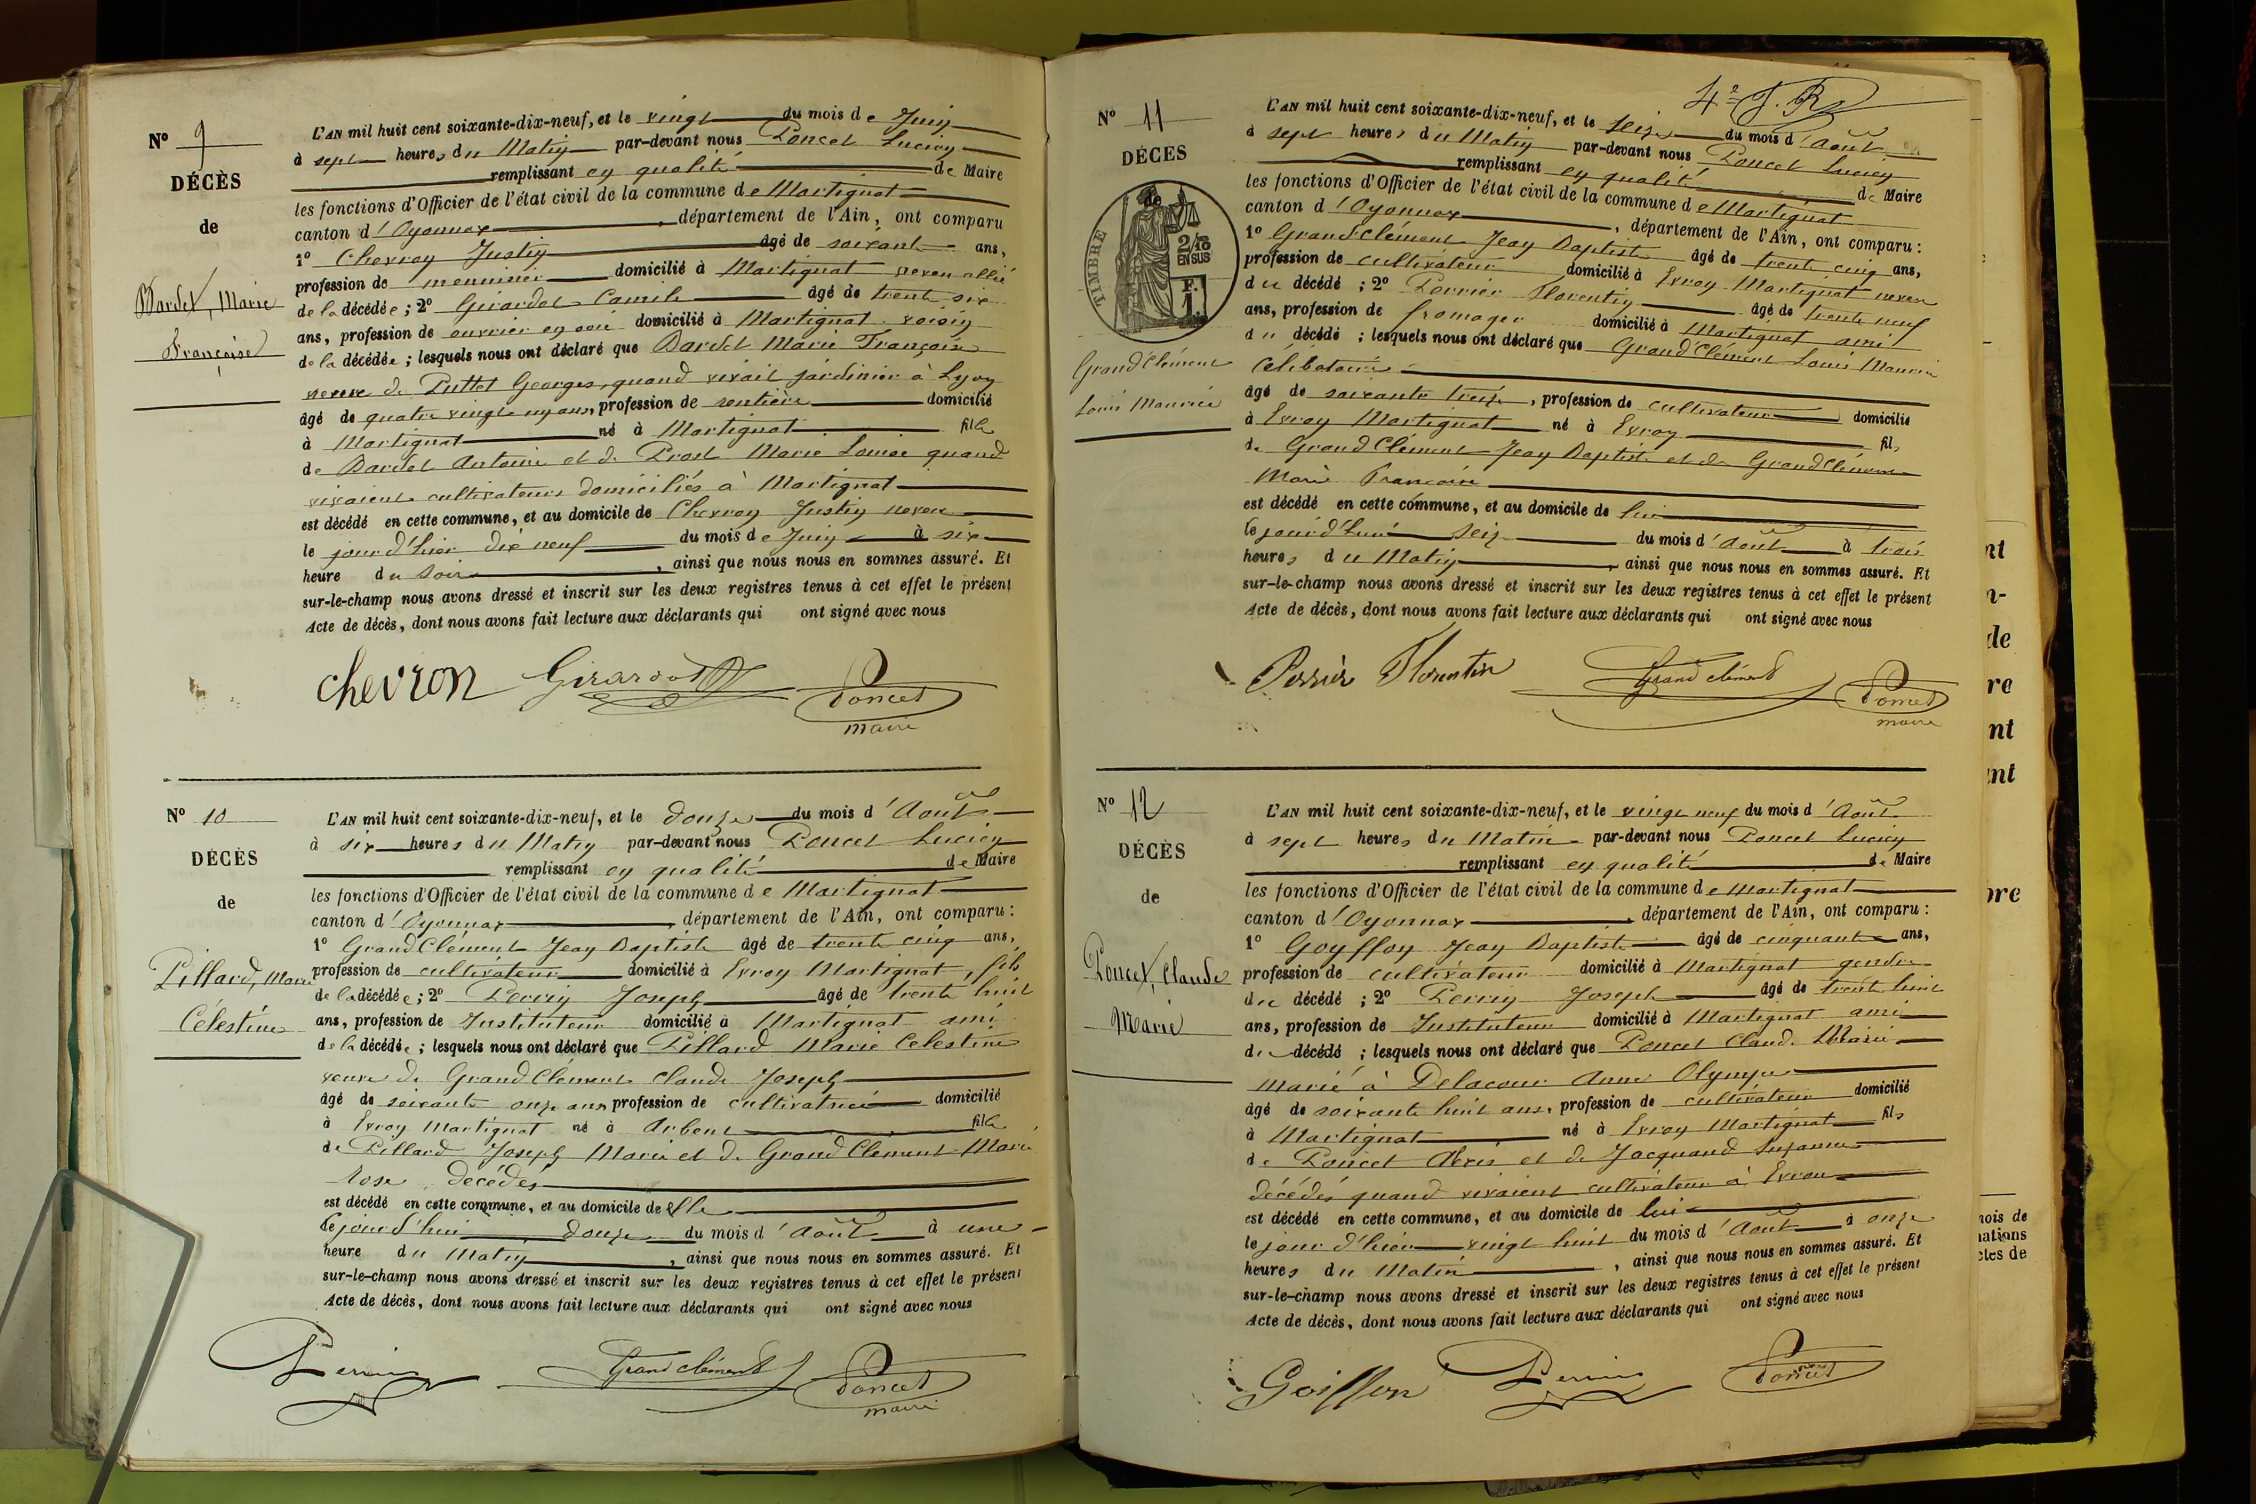 N° 9
DÉCÈS
de
Bardet, Marie
Française
L'AN mil huit cent soixante-dix-neuf, et le vingt du mois de Juin
à sept heures du Matin par-devant nous Poncet Lucien
remplissant en qualité de Maire
les fonctions d'Officier de l'état civil de la commune de Martignat
canton d'Oyonnax, département de l'Ain, ont comparu
1° Chevron Justin âgé de soixante ans,
profession de menuisier domicilié à Martignat neveu allié
de la décédée; 2° Girardot Camile âgé de trente six
ans, profession de ouvrier en soie domicilié à Martignat voisin
de la décédée; lesquels nous ont déclaré que Bardet Marie Françoise
veuve de Puttet Georges, quand vivait jardinier à Lyon
âgé de quatre vingt un ans, profession de rentière domicilié
à Martignat né à Martignat fille
de Bardet Antoine et de Prost Marie Louise quand
vivaient cultivateurs domiciliés à Martignat
est décédé en cette commune, et au domicile de Chevron Justin neveu
le jour d'hier dix neuf du mois de Juin à six
heure du soir, ainsi que nous nous en sommes assuré. Et
sur-le-champ nous avons dressé et inscrit sur les deux registres tenus à cet effet le présent
Acte de décès, dont nous avons fait lecture aux déclarants qui ont signé avec nous
chevron Girardot Poncet
maire
N° 10
DÉCÈS
de
Pillard, Marie
Célestine
L'AN mil huit cent soixante-dix-neuf, et le douze du mois d'Août
à six heures du Matin par-devant nous Poncet Lucien
remplissant en qualité de Maire
les fonctions d'Officier de l'état civil de la commune de Martignat
canton d'Oyonnax, département de l'Ain, ont comparu:
1° GrandClément Jean Baptiste âgé de trente cinq ans,
profession de cultivateur domicilié à Evron Martignat, fils
de la décédée; 2° Perrin Joseph âgé de trente huit
ans, profession de Instituteur domicilié à Martignat ami
de la décédée; lesquels nous ont déclaré que Pillard Marie Célestine
veuve de GrandClément Claude Joseph
âgé de soixante onze ans profession de cultivatrice domicilié
à Evron Martignat né à Arbent fille
de Pillard Joseph Marie et de GrandClément Marie
Rose décédés
est décédé en cette commune, et au domicile de elle
le jourd'hui douze du mois d'Août à une
heure du Matin, ainsi que nous nous en sommes assuré. Et
sur-le-champ nous avons dressé et inscrit sur les deux registres tenus à cet effet le présent
Acte de décès, dont nous avons fait lecture aux déclarants qui ont signé avec nous
Perrin Grandclément Poncet
maire
N° 11
DÉCÈS
de
TIMBRE
2/10
EN SUS
F.
1.
GrandClément
Louis Maurice
L'AN mil huit cent soixante-dix-neuf, et le seize du mois d'Août
à sept heures du Matin par-devant nous Poncet Lucien
remplissant en qualité de Maire
les fonctions d'Officier de l'état civil de la commune de Martignat
canton d'Oyonnax, département de l'Ain, ont comparu:
1° GrandClément Jean Baptiste âgé de trente cinq ans,
profession de cultivateur domicilié à Evron Martignat neveu
du décédé; 2° Perrier Florentin âgé de trente neuf
ans, profession de fromager domicilié à Martignat ami
du décédé; lesquels nous ont déclaré que GrandClément Louis Maurice
Célibataire
âgé de soixante treize, profession de cultivateur domicilié
à Evron Martignat né à Evron fils
de GrandClément Jean Baptiste et de GrandClément
Marie Françoise
est décédé en cette commune, et au domicile de lui
le jourd'hui seize du mois d'Août à trois
heures du Matin, ainsi que nous nous en sommes assuré. Et
sur-le-champ nous avons dressé et inscrit sur les deux registres tenus à cet effet le présent
Acte de décès, dont nous avons fait lecture aux déclarants qui ont signé avec nous
Perrier Florentin Grand clément Poncet
maire
N° 12
DÉCÈS
de
Poncet, Claude
Marie
L'AN mil huit cent soixante-dix-neuf, et le vingt neuf du mois d'Août
à sept heures du Matin par-devant nous Poncet Lucien
remplissant en qualité de Maire
les fonctions d'Officier de l'état civil de la commune de Martignat
canton d'Oyonnax, département de l'Ain, ont comparu:
1° Goyffon Jean Baptiste âgé de cinquante ans,
profession de cultivateur domicilié à Martignat gendre
du décédé; 2° Perrin Joseph âgé de trente huit
ans, profession de Instituteur domicilié à Martignat ami
du décédé; lesquels nous ont déclaré que Poncet Claude Marie
marié à Delacour Anne Olympe
âgé de soixante huit ans, profession de cultivateur domicilié
à Martignat né à Evron Martignat fils
de Poncet Alexis et de Jacquand Suzanne
décédés quand vivaient cultivateur à Evron
est décédé en cette commune, et au domicile de lui
le jour d'hier vingt huit du mois d'Août à onze
heures du Matin, ainsi que nous nous en sommes assuré. Et
sur-le-champ nous avons dressé et inscrit sur les deux registres tenus à cet effet le présent
Acte de décès, dont nous avons fait lecture aux déclarants qui ont signé avec nous
Goiffon Perrin Poncet